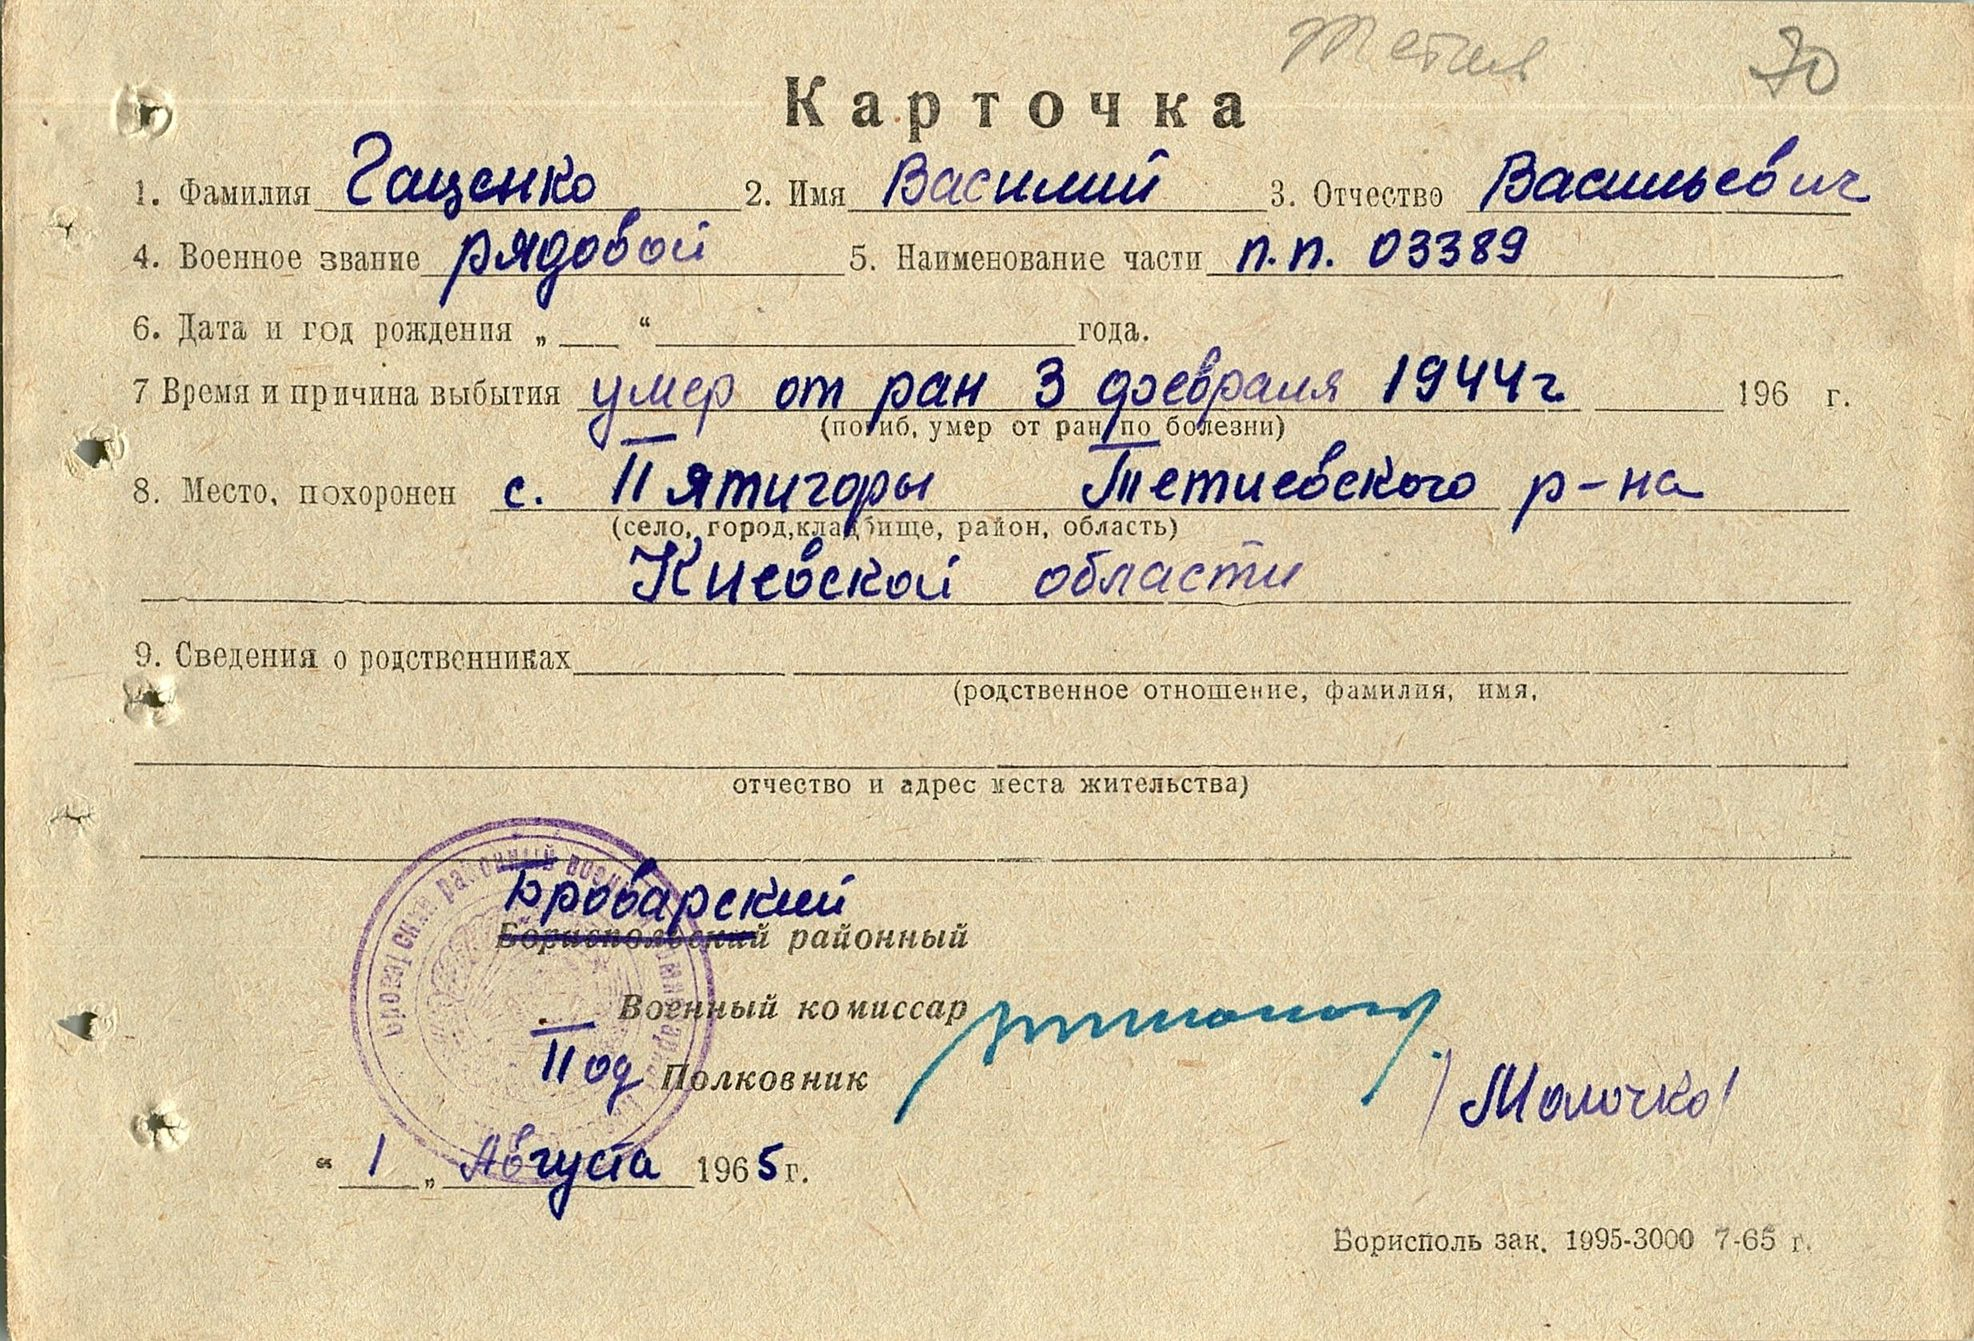 70
Карточка
1. Фамилия Гащенко 2. Имя Василий 3. Отчество Васильевич
4. Военное звание рядовой 5. Наименование части п.п. 03389
6. Дата и год рождения „ “ года.
7 Время и причина выбытия умер от ран 3 февраля 1944г 196 г.
(погиб, умер от ран, по болезни)
8. Место, похоронен с. Пятигоры Тетиевского р-на
(село, город, кладбище, район, область)
Киевской области
9. Сведения о родственниках
(родственное отношение, фамилия, имя,
отчество и адрес места жительства)
Броварский
Бориспольский районный
Военный комиссар
Под Полковник
/Молочко/
“ 1 „ Августа 1965 г.
Борисполь зак. 1995-3000 7-65 г.